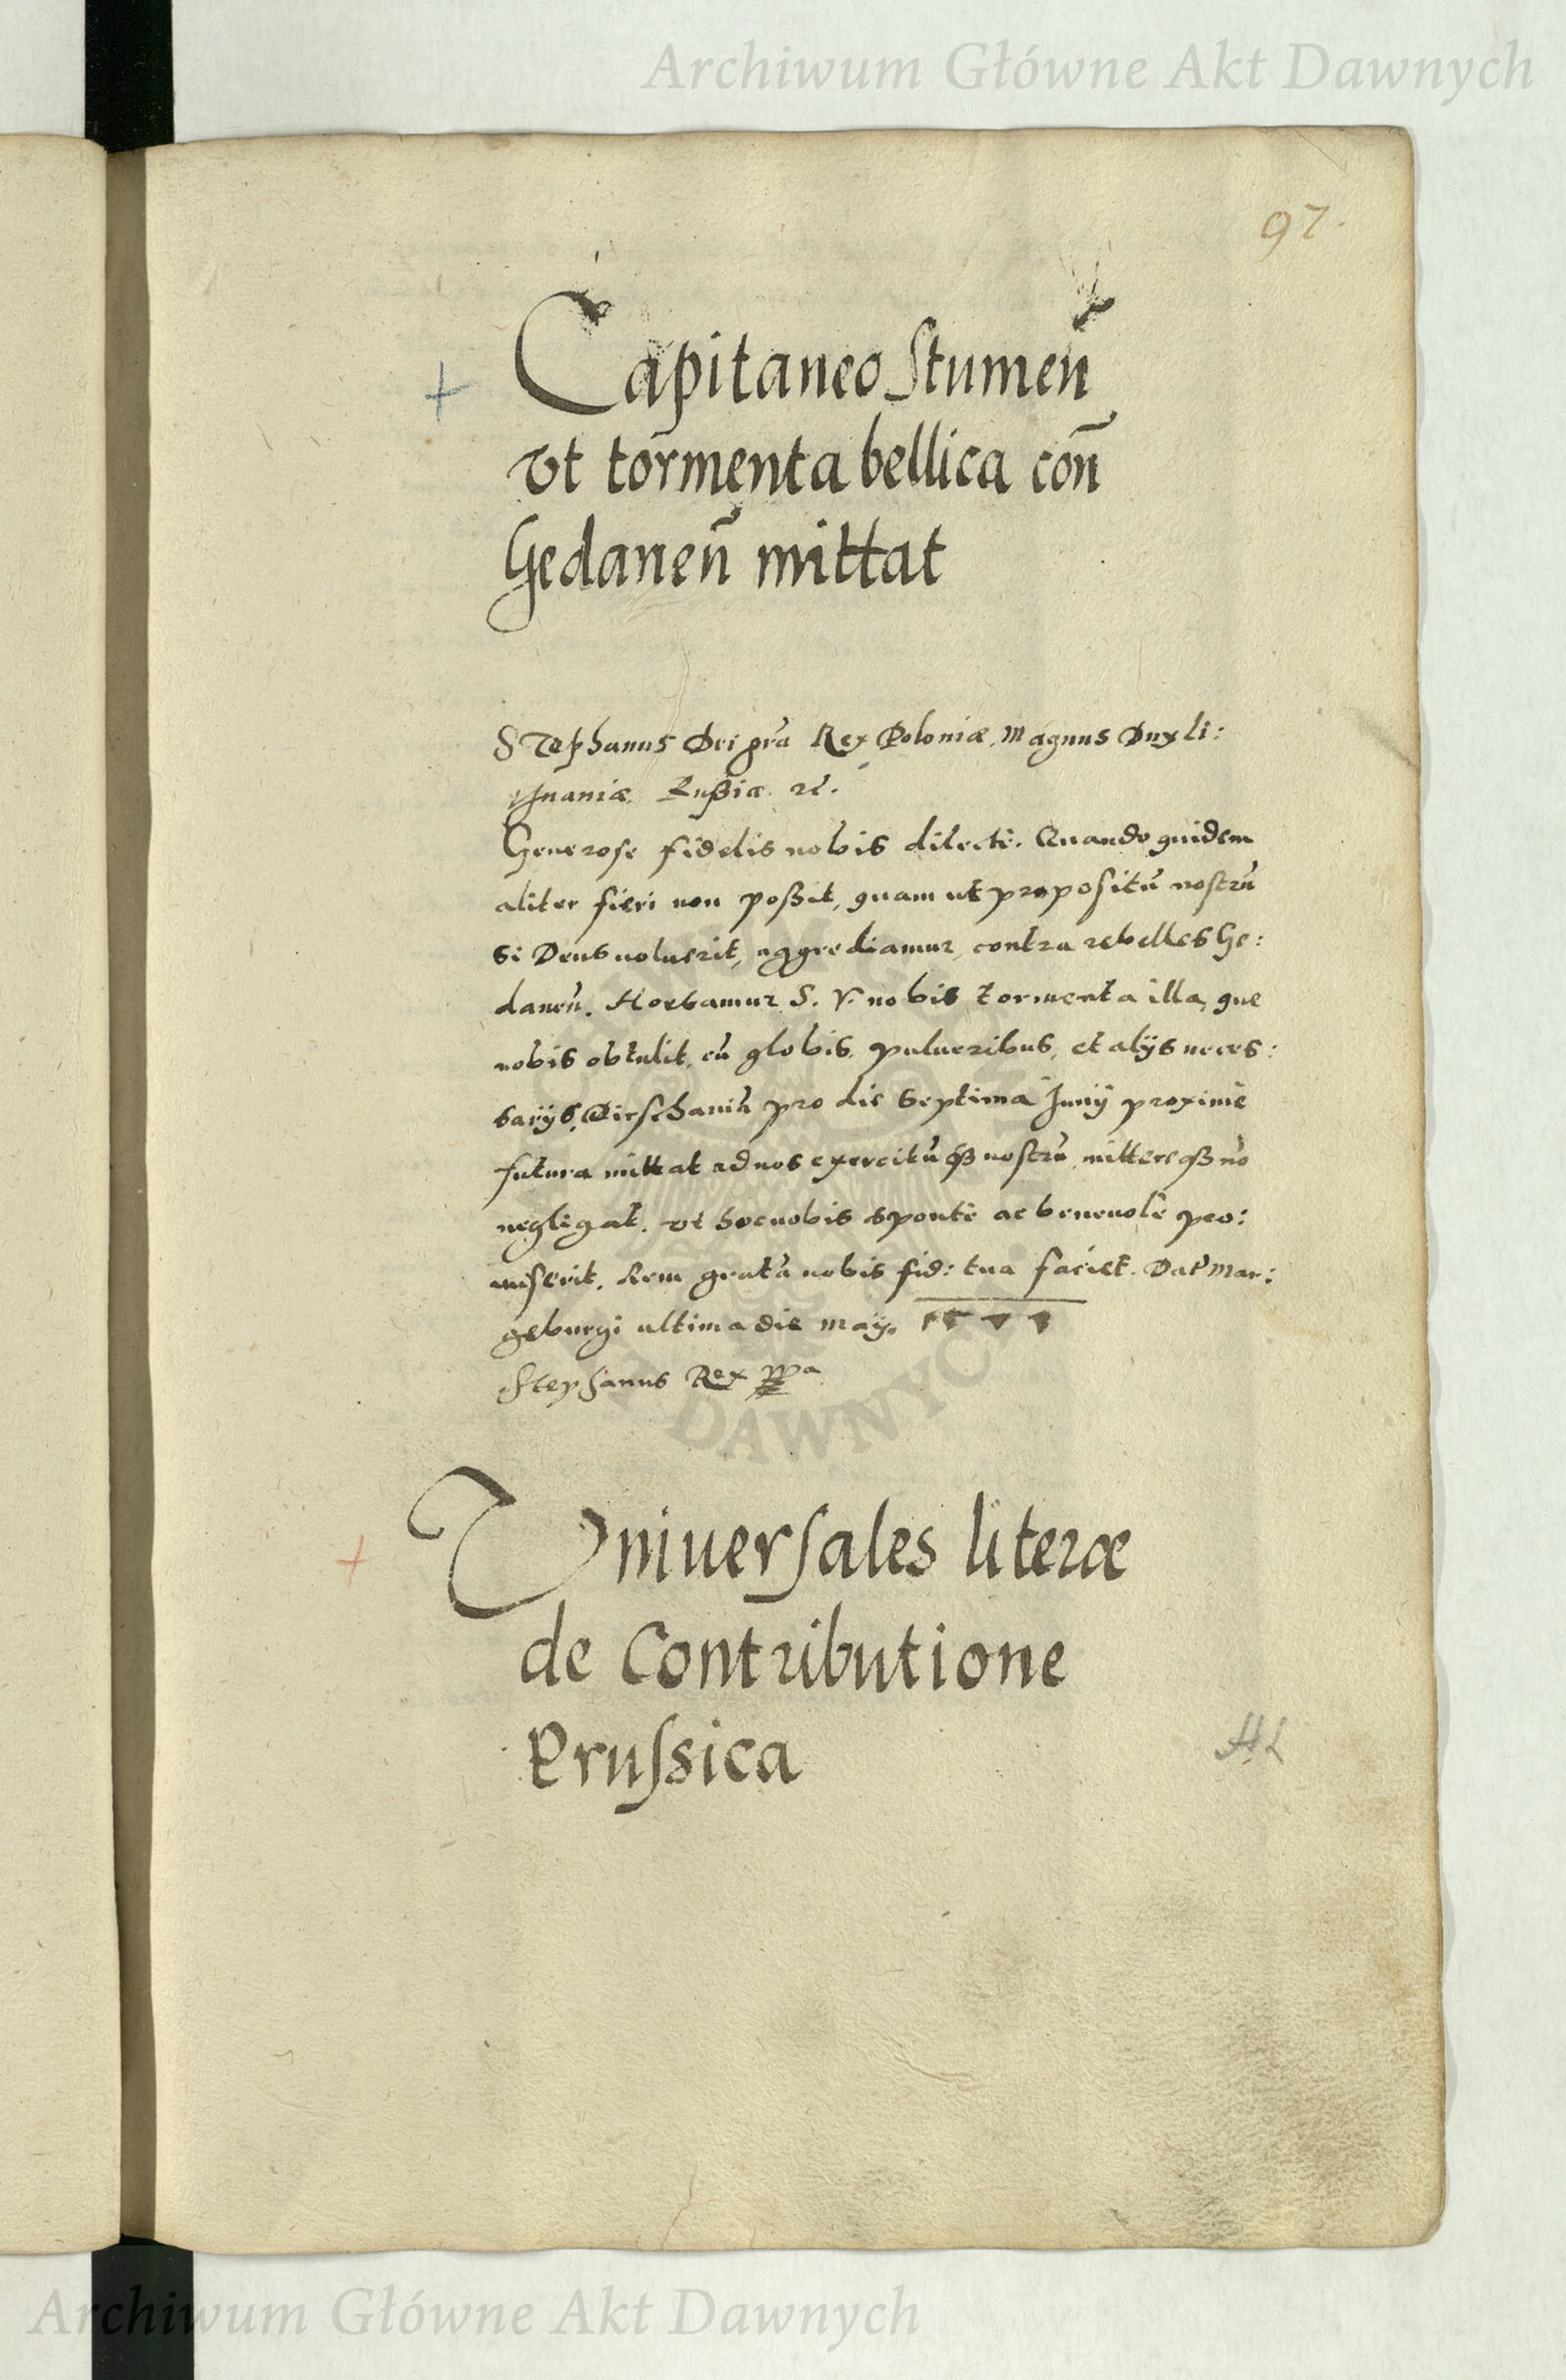 Archiwum Główne Akt Dawnych
97.
Capitaneo Stumen̄
vt tormenta bellica con̄
Gedanen̄ mittat
STephanus Dei gr̃a Rex Poloniæ, Magnus Dux Li:
thuaniæ, Rußiæ
Generose fidelis nobis dilecte. Quando quidem
aliter fieri non poßit, quam ut propositũ nostrũ
si Deus voluerit, aggrediamur, contra rebelles Ge:
danen̄. Hortamur S. V. nobis tormenta illa, que
nobis obtulit, cũ globis, pulueribus, et alijs neces:
sarijs, Dirschaviã pro die septima Junij proximè
futura mittat ad nos exercitũq3 nostrũ, mittereq3 nõ
negligat, vt hoc nobis sponte ac beneuolè pro:
miserit. Rem gratã nobis fid: tua faciet. Dat̃ Mar:
geburgi ultima die Maij.
Stephanus Rex
Vniuersales literæ
de Contributione
Prussica
DAWNYCH
Archiwum Główne Akt Dawnych